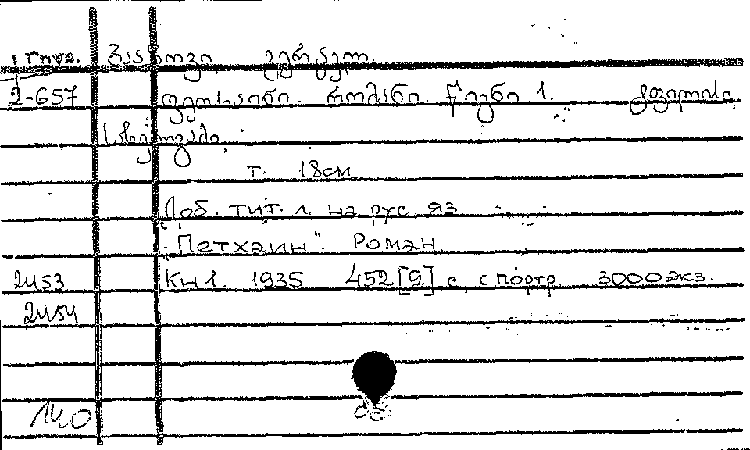 2-657 რომანი. წიგნი 1. ტფილისი,
სახელგამი,
т. 18см
Доб. тит. л. на рус. яз
"Петхаин". Роман
2453 Кн 1. 1935 452[9] с. с портр. 3000 экз.
2454
140